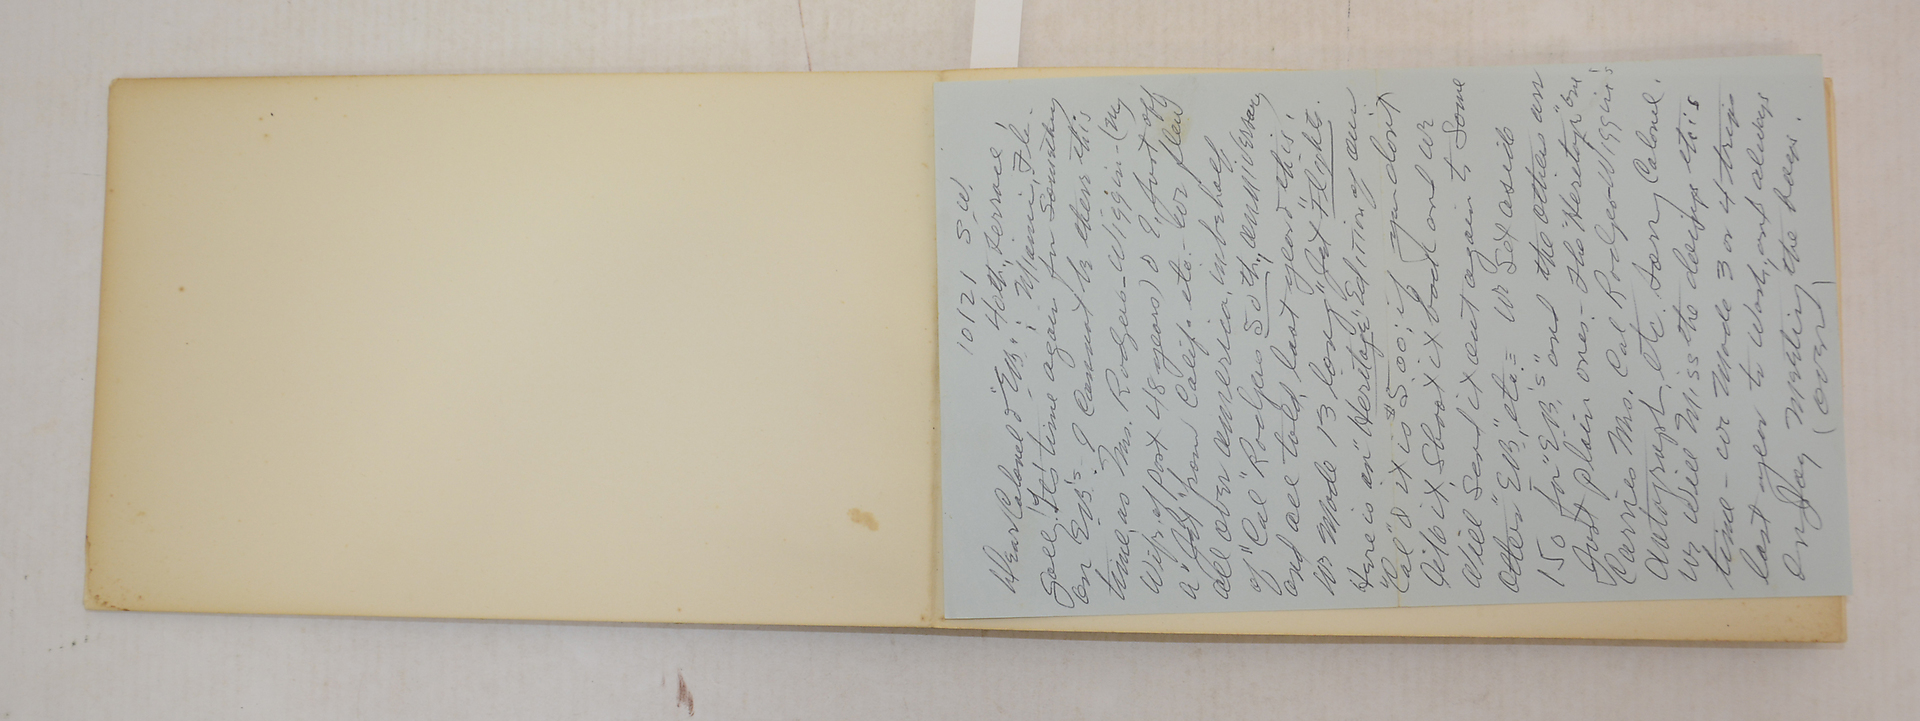 10121 S.W.
Dear Colonel & "EB"; 40th, Terrace,
Gosh, It's time again for Something
on E.B's - I cannot be there this
time as Mrs. Rodgers-Wiggin - (my
Wife, of past 48 years) & I just off
a from Calif. etc. We flew
all over america, in behalf
of "Cal" Rodgers 50 th, anniversary
and all told last year this.
We made 13 long Jet Flight.
Here is an "Heritage" Edition of our
"Cal" & it is $5.00; if you don't
like it, Shoot it back and we
will Send it out again to Some
other "EB", etc. = We Set aside
150 for "E.B.'s" and the others are
Just plain ones - The "Heretage" one
Carries Mrs. Cal Rodgers-Wiggin's
Autograph, etc. Sorry Colonel.
We will Miss the doings this
time - we made 3 or 4 trips
last year to Wash, and always
enjoy meeting the boys.
(over)
Miami, Fla.